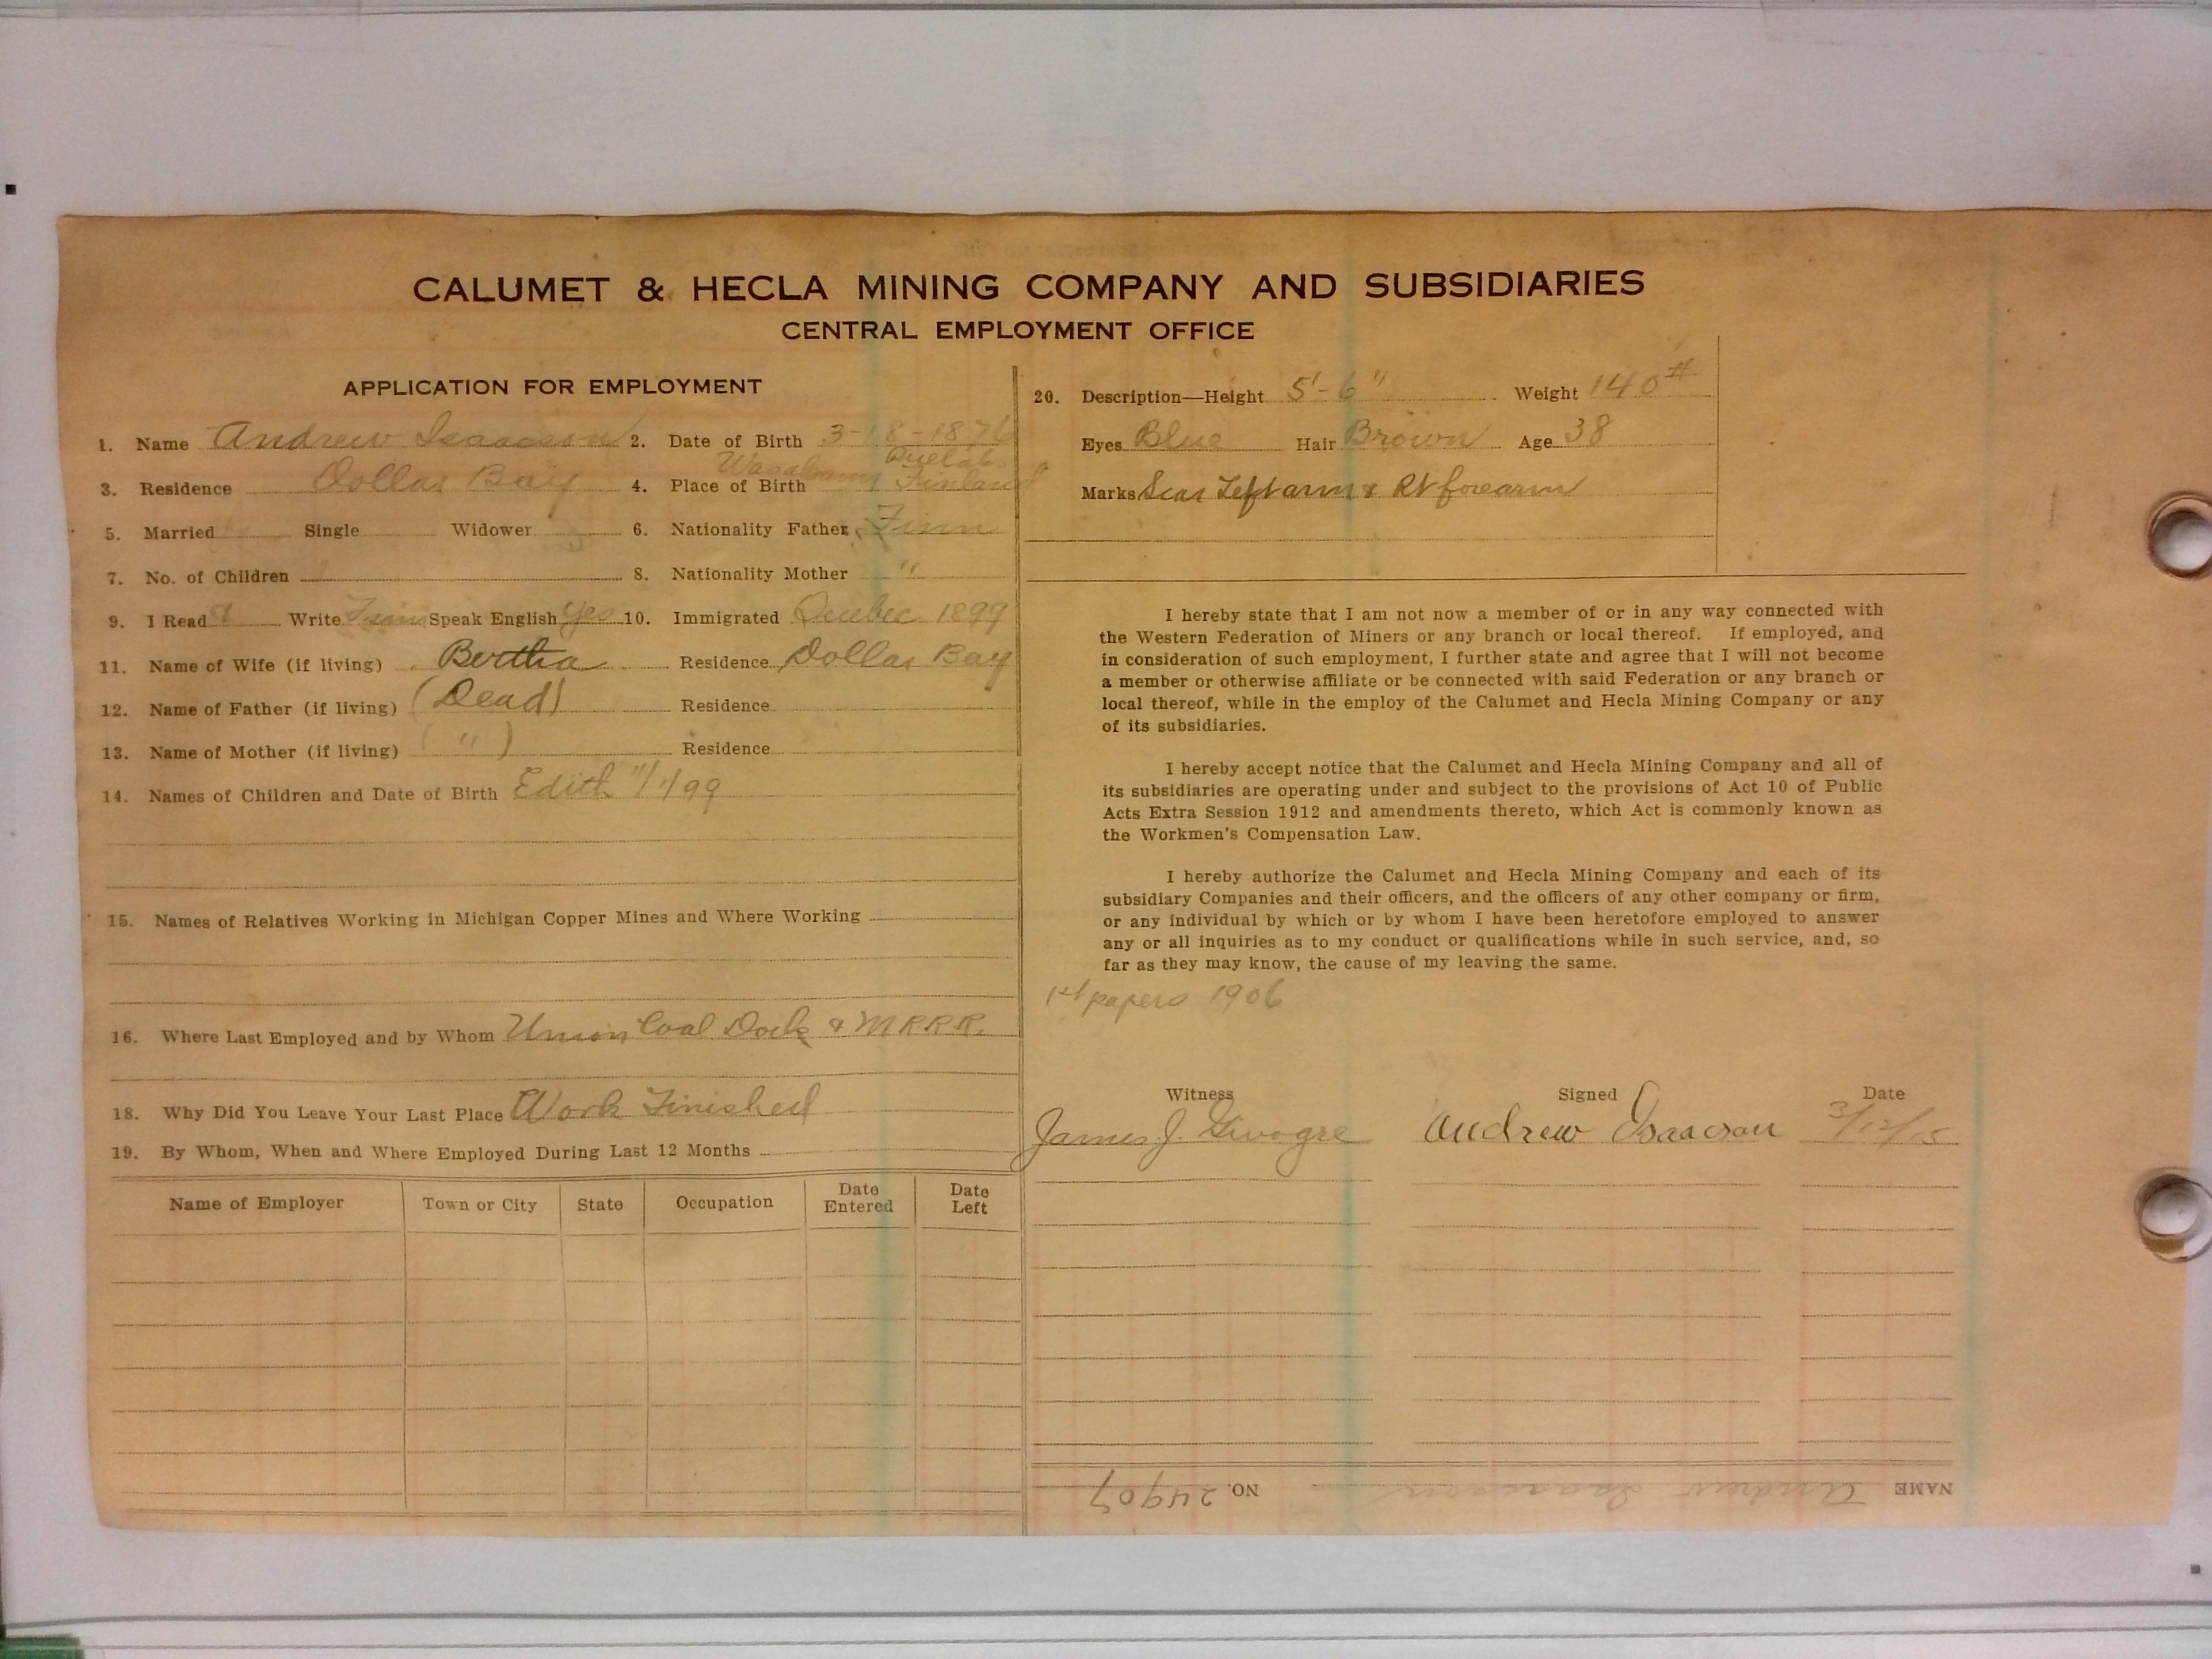 CALUMET & HECLA MINING COMPANY AND SUBSIDIARIES
CENTRAL EMPLOYMENT OFFICE
APPLICATION FOR EMPLOYMENT
1. Name Andrew Isaacson 2. Date of Birth 3-18-1876
3. Residence Dollar Bay 4. Place of Birth Finland
5. Married Single Widower 6. Nationality Father Finn
7. No. of Children 8. Nationality Mother "
9. I Read & Write Finn Speak English Yes 10. Immigrated Quebec 1899
11. Name of Wife (if living) Bertha Residence Dollar Bay
12. Name of Father (if living) (Dead) Residence
13. Name of Mother (if living) ( " ) Residence
14. Names of Children and Date of Birth Edith 11/1/99
15. Names of Relatives Working in Michigan Copper Mines and Where Working
16. Where Last Employed and by Whom Union Coal Dock & M R.R.R.
18. Why Did You Leave Your Last Place Work Finished
19. By Whom, When and Where Employed During Last 12 Months
Name of Employer Town or City State Occupation Date Entered Date Left
20. Description—Height 5'-6" Weight 140#
Eyes Blue Hair Brown Age 38
Marks Scar Left arm & Rt forearm
I hereby state that I am not now a member of or in any way connected with
the Western Federation of Miners or any branch or local thereof. If employed, and
in consideration of such employment, I further state and agree that I will not become
a member or otherwise affiliate or be connected with said Federation or any branch or
local thereof, while in the employ of the Calumet and Hecla Mining Company or any
of its subsidiaries.
I hereby accept notice that the Calumet and Hecla Mining Company and all of
its subsidiaries are operating under and subject to the provisions of Act 10 of Public
Acts Extra Session 1912 and amendments thereto, which Act is commonly known as
the Workmen's Compensation Law.
I hereby authorize the Calumet and Hecla Mining Company and each of its
subsidiary Companies and their officers, and the officers of any other company or firm,
or any individual by which or by whom I have been heretofore employed to answer
any or all inquiries as to my conduct or qualifications while in such service, and, so
far as they may know, the cause of my leaving the same.
1st papers 1906
Witness Signed Date
James J. Andrew Isaacson 3/12/15
NAME Andrew Isaacson NO. 24907